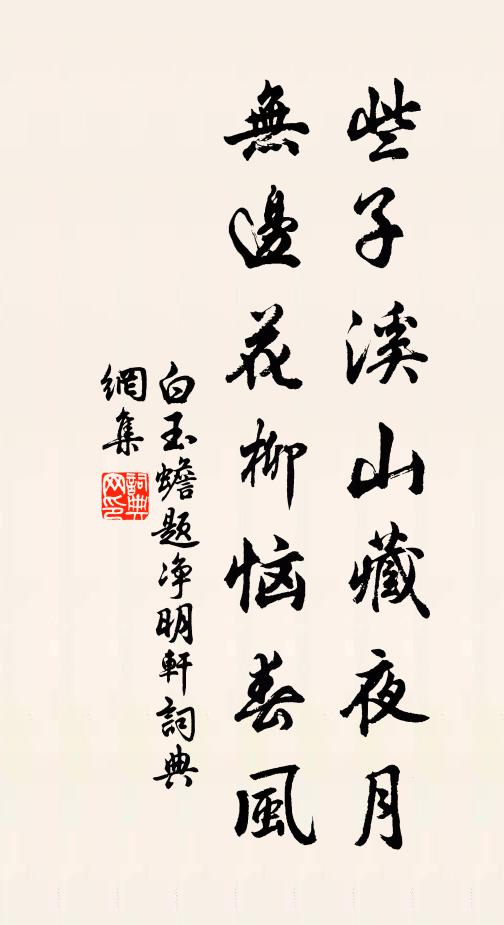 些子溪山藏夜月
無邊花柳惱春風
白玉蟾題净明軒詞典
網集
詞典網印